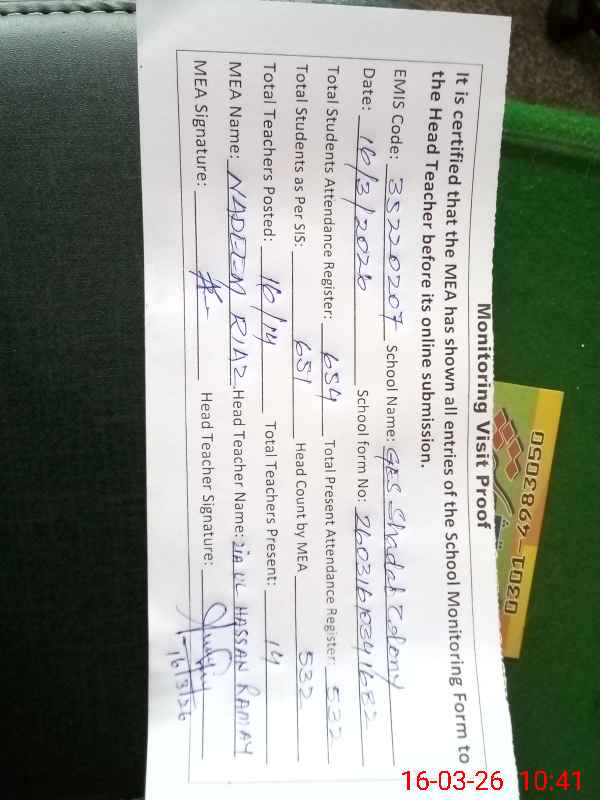 Monitoring Visit Proof
It is certified that the MEA has shown all entries of the School Monitoring Form to
the Head Teacher before its online submission.
EMIS Code: 35220207 School Name: GES Shadab Colony
Date: 16/3/2026 School form No:
Total Students Attendance Register: 654 Total Present Attendance Register: 532
Total Students as Per SIS: 651 Head Count by MEA 532
Total Teachers Posted: 16/14 Total Teachers Present: 14
MEA Name: NADEEM RIAZ Head Teacher Name: ZIA UL HASSAN RAMAY
MEA Signature: Head Teacher Signature:
16/3/26
0301-4983050
16-03-26 10:41